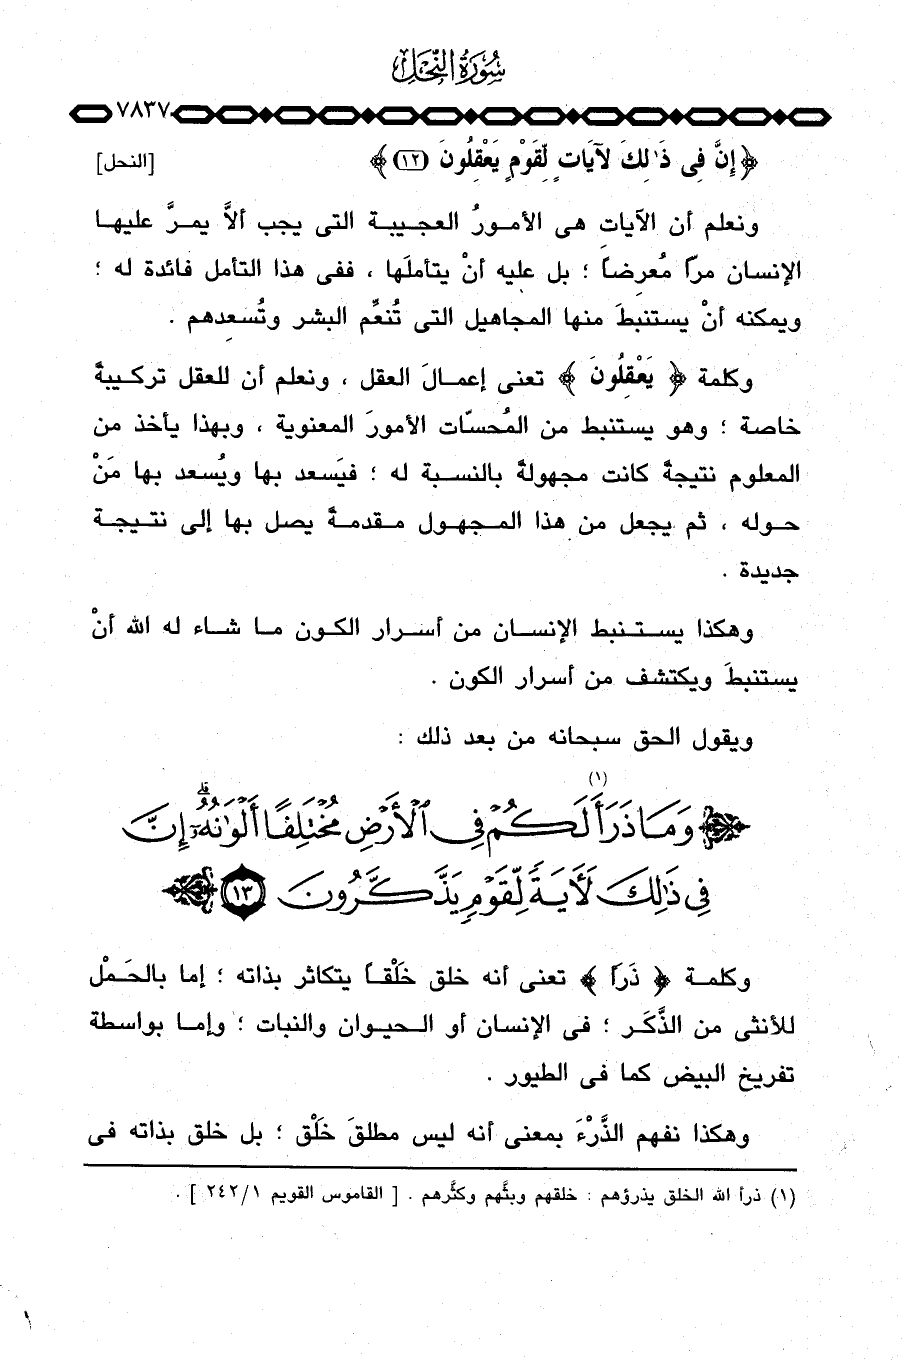 سُورَةُ النَّحْلِ
٧٨٣٧
﴿ إِنَّ فِى ذَٰلِكَ لَآيَاتٍ لِّقَوْمٍ يَعْقِلُونَ (١٢) ﴾ [النحل]
ونعلم أن الآيات هى الأمورُ العجيبة التى يجب ألاَّ يمرَّ عليها
الإنسان مراً مُعرِضاً ؛ بل عليه أنْ يتأملَها ، ففى هذا التأمل فائدة له ؛
ويمكنه أنْ يستنبطَ منها المجاهيل التى تُنعِّم البشر وتُسعِدهم .
وكلمة ﴿ يَعْقِلُونَ ﴾ تعنى إعمالَ العقل ، ونعلم أن للعقل تركيبةً
خاصة ؛ وهو يستنبط من المُحسّات الأمورَ المعنوية ، وبهذا يأخذ من
المعلوم نتيجةً كانت مجهولةً بالنسبة له ؛ فيَسعد بها ويُسعد بها مَنْ
حوله ، ثم يجعل من هذا المجهول مقدمةً يصل بها إلى نتيجة
جديدة .
وهكذا يستنبط الإنسان من أسرار الكون ما شاء له الله أنْ
يستنبطَ ويكتشف من أسرار الكون .
ويقول الحق سبحانه من بعد ذلك :
﴿ وَمَا ذَرَأَ(١) لَكُمْ فِى ٱلْأَرْضِ مُخْتَلِفًا أَلْوَٰنُهُۥٓ ۗ إِنَّ
فِى ذَٰلِكَ لَآيَةً لِّقَوْمٍ يَذَّكَّرُونَ ١٣ ﴾
وكلمة ﴿ ذَرَأَ ﴾ تعنى أنه خلق خَلْقاً يتكاثر بذاته ؛ إما بالحَمْل
للأنثى من الذَّكَر ؛ فى الإنسان أو الحيوان والنبات ؛ وإما بواسطة
تفريخ البيض كما فى الطيور .
وهكذا نفهم الذَّرْءَ بمعنى أنه ليس مطلقَ خَلْق ؛ بل خلق بذاته فى
(١) ذرأ الله الخلق يذرؤهم : خلقهم وبثَّهم وكثَّرهم . [ القاموس القويم ٢٤٢/١ ] .